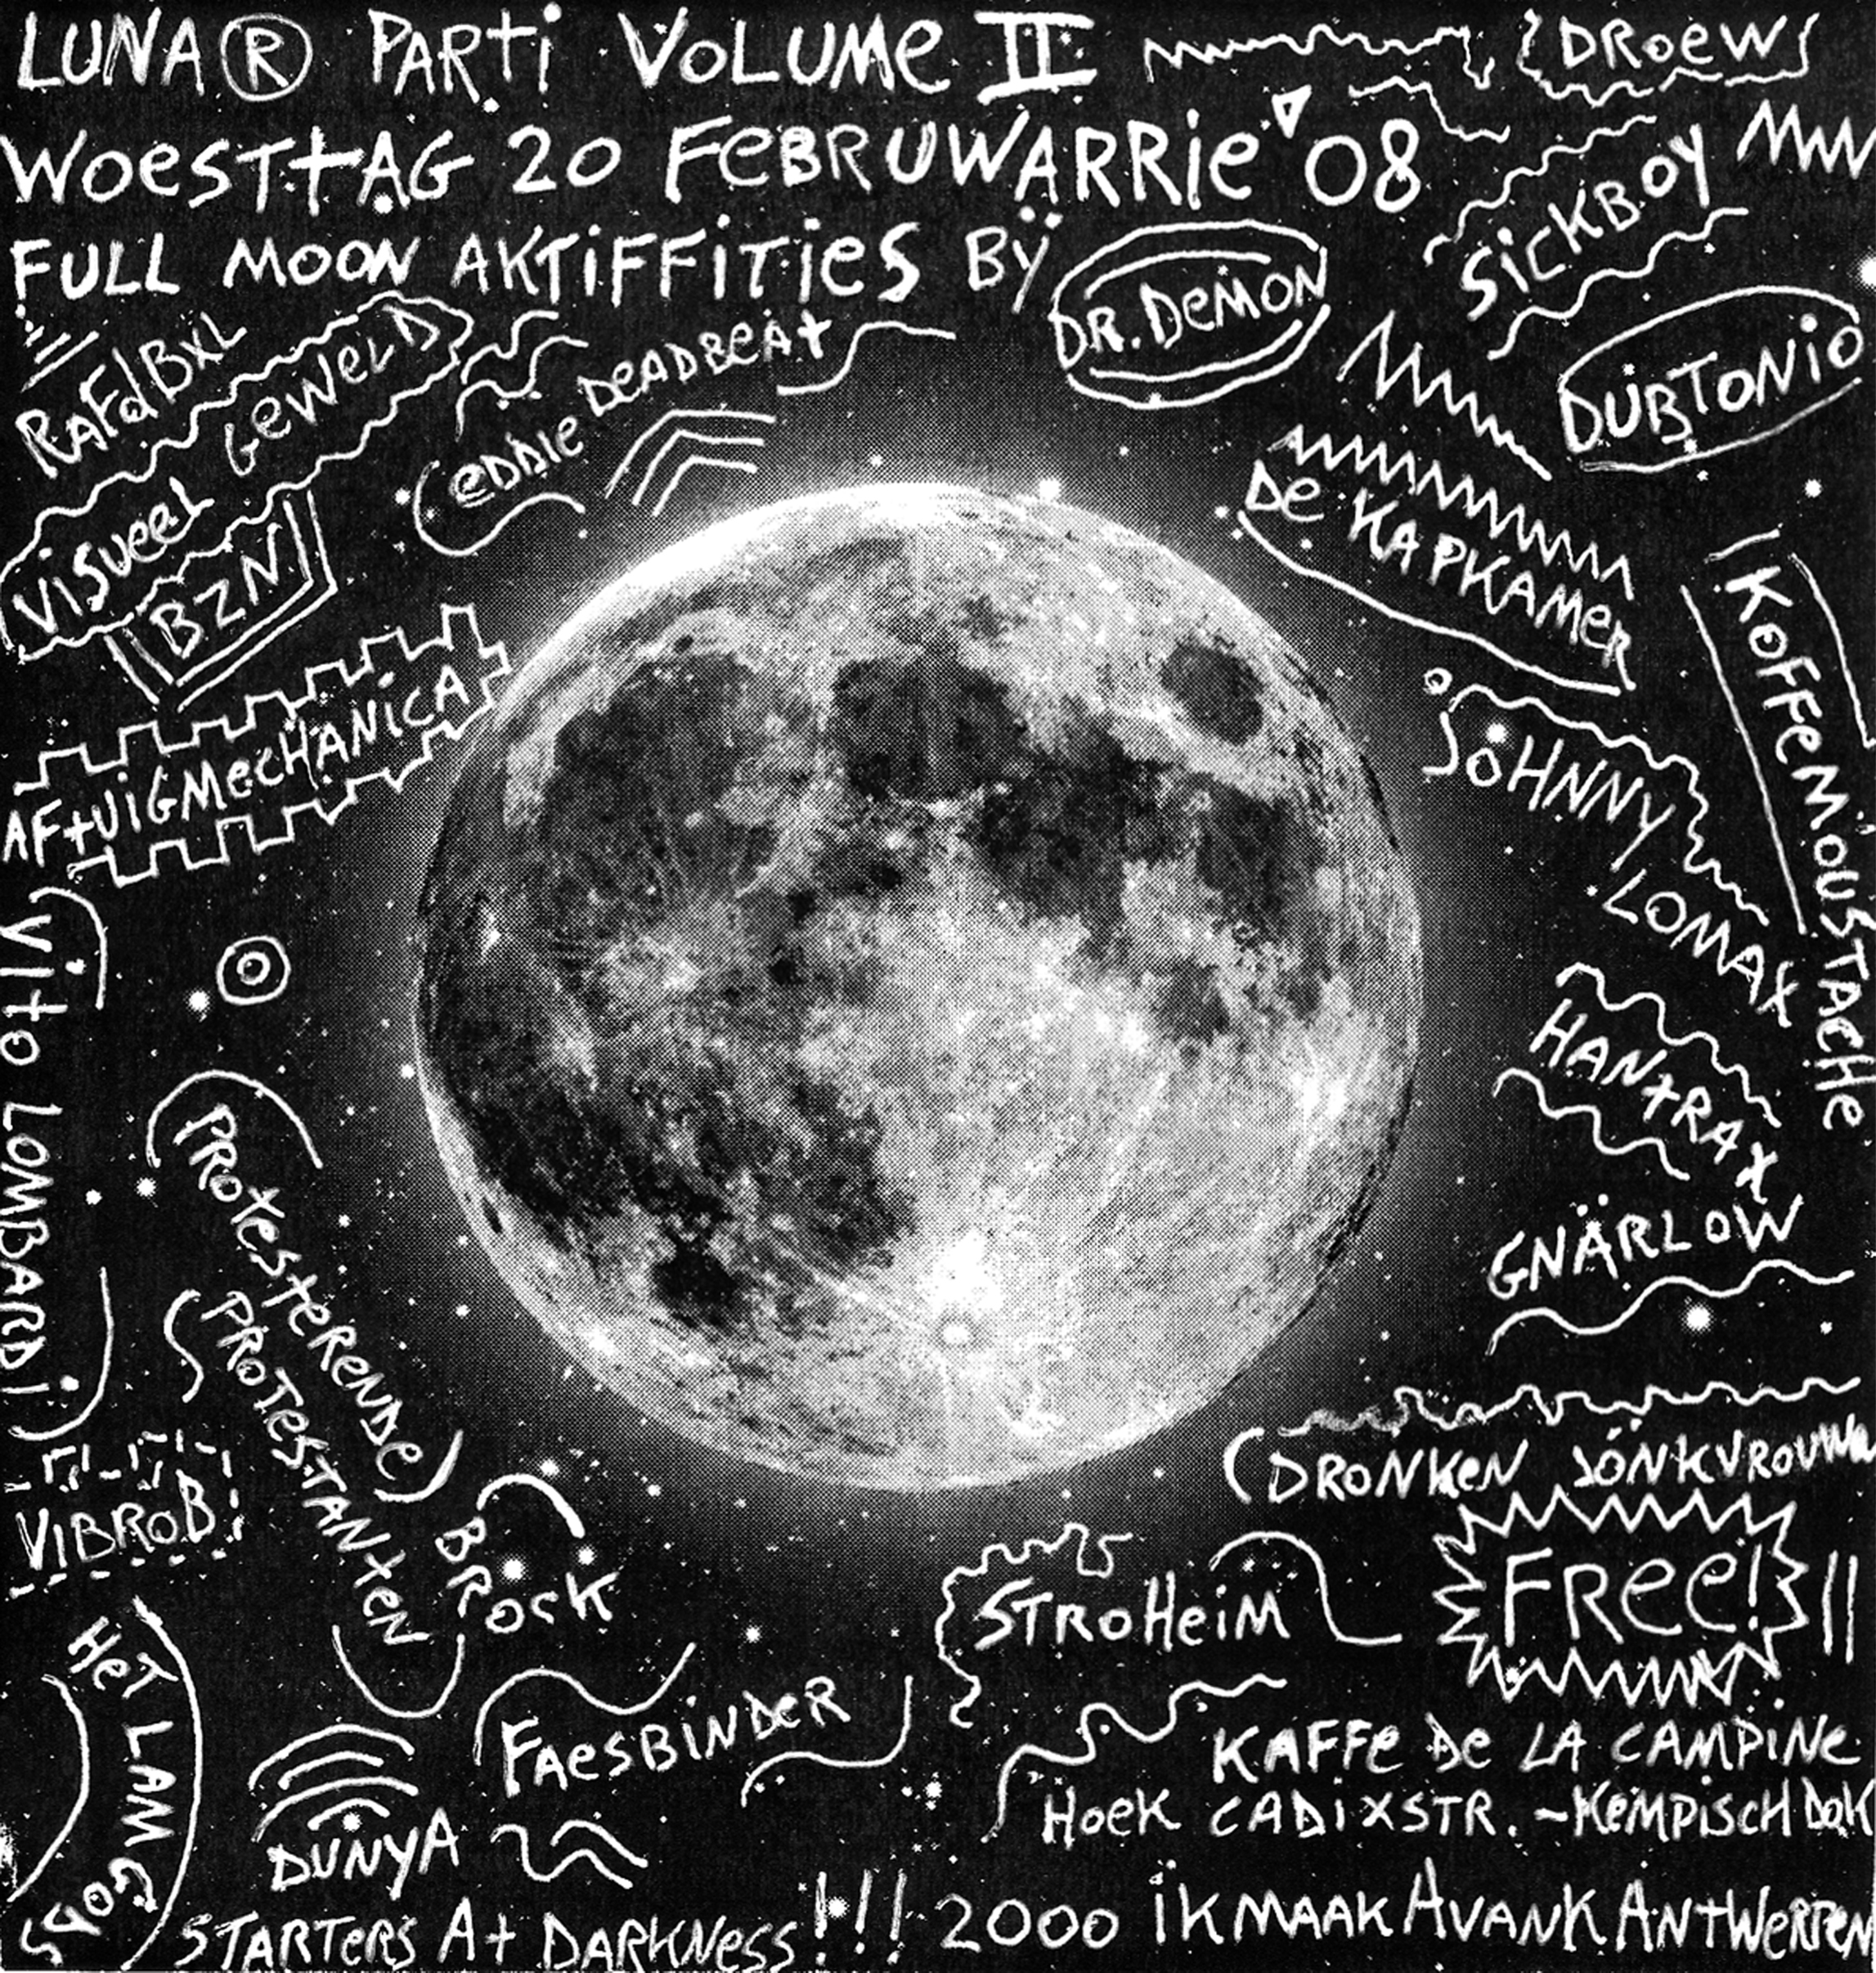 LUNA® PARTi VOLUMe II
DRoeW
WoesTtAG 20 FeBRUWARRie '08
SiCKBOY
FULL MOON AKTiFFiTieS BŸ
DR. DeMON
DUBTONiO
RAFdBXL
ViSUeeL GeWeLD
eDDIe DeADBeAt
BZN
De KAPKAMeR
KOFFeMOUSTACHe
AFtUiGMecHANiCA
JOHNNY LOMAX
VitO LOMBARDI
HANtRAX
PROtesteReNDe
PROTeSTANteN
GNÄRLOW
DRONKeN JONKVROUW
VIBROB
BROCK
STROHeiM
FRee!
HeT LAM GODS
FAeSBiNDeR
KAFFe De LA CAMPiNe
HOeK CADiXSTR. - KeMPiSCH DOK
DUNYA
STARTeRS At DARKNeSS!!! 2000 iKMAAKAVANKANtWeRPeN